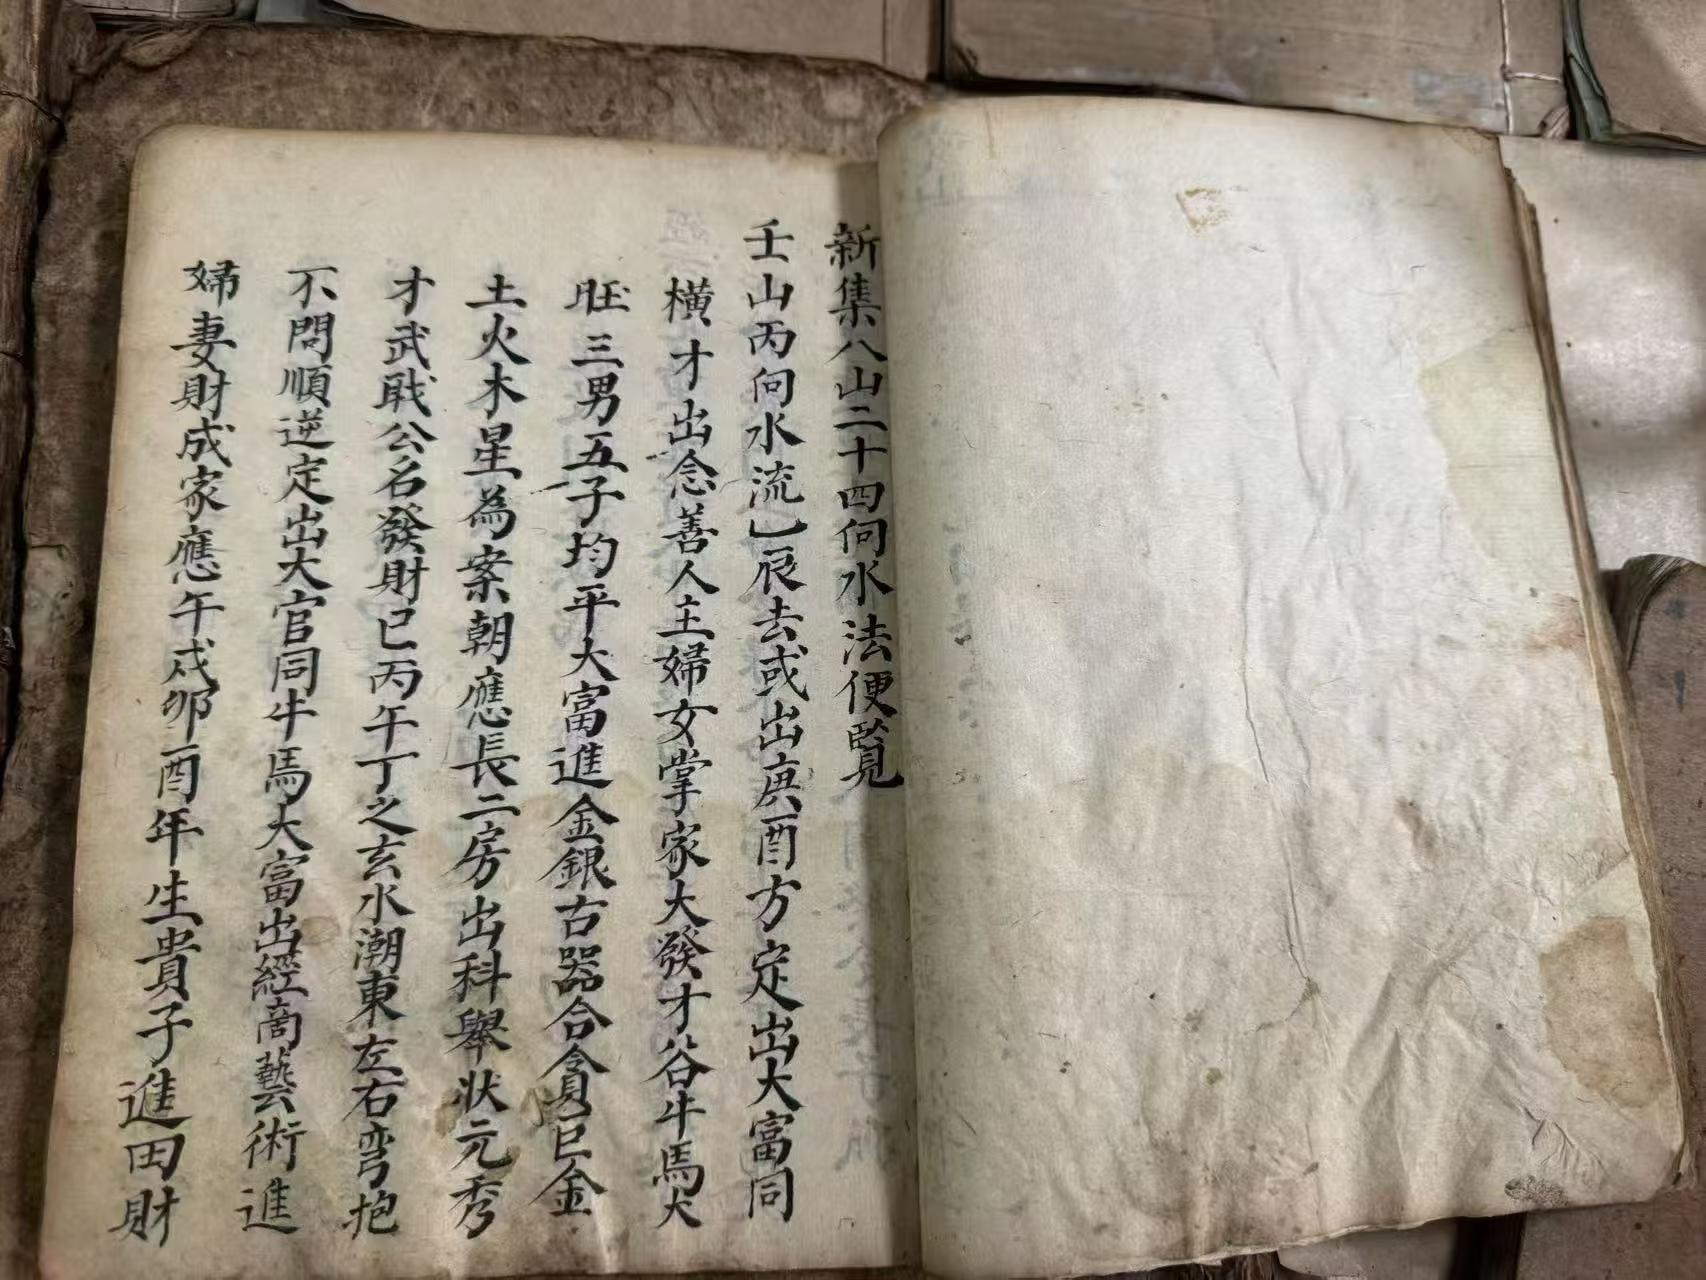 新集八山二十四向水法便覧
壬山丙向水流乙辰去或出庚酉方定出大富同
橫才出念善人主婦女掌家大發才谷牛馬大
旺三男五子均平大富進金銀古器合貪巳金
土火木星為案朝應長二房出科舉狀元秀
才武戢公名發財巳丙午丁之玄水潮東左右弯抱
不問順逆定出大官同牛馬大富出經商藝術進
婦妻財成家應午戌卯酉年生貴子進田財